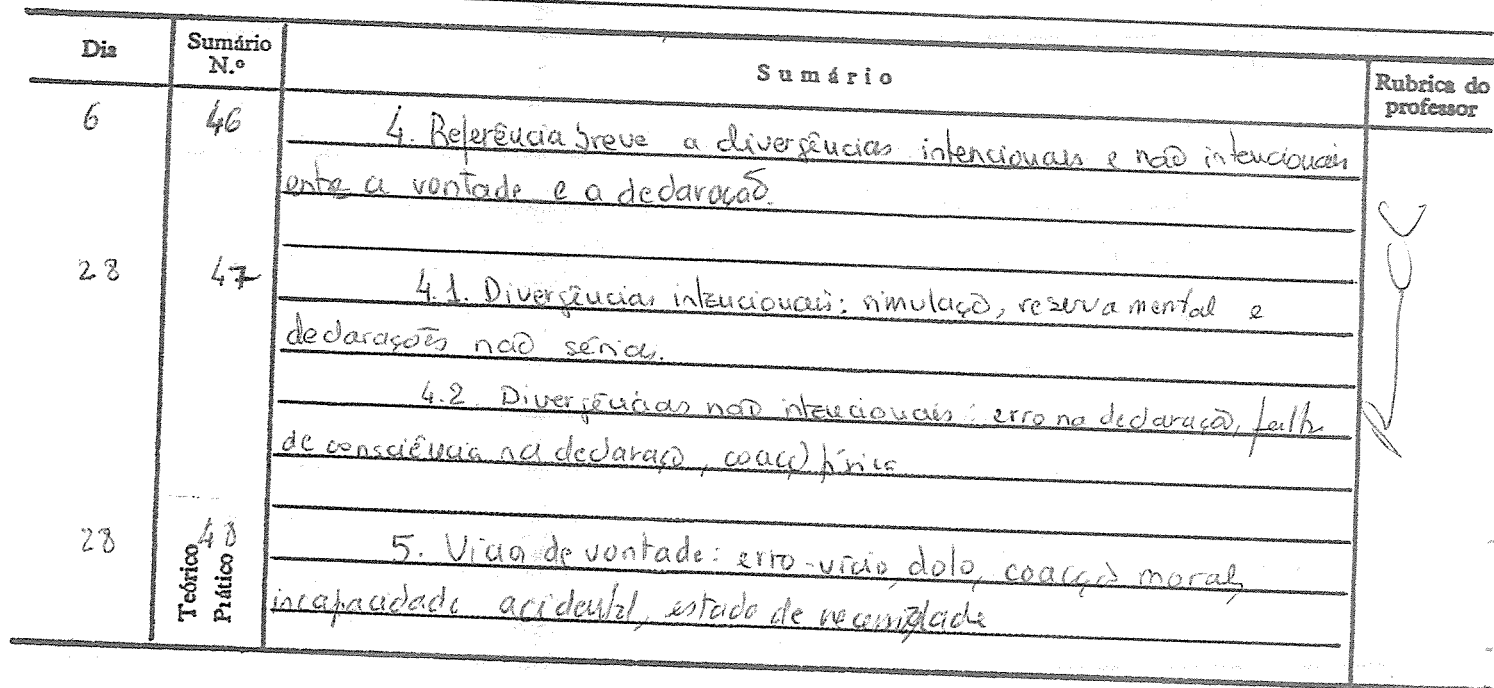 Dia Sumário N.º Sumário Rubrica do professor
6 46 4. Referência breve a divergências intencionais e não intencionais
entre a vontade e a declaração.
28 47 4.1. Divergências intencionais: simulação, reserva mental e
declarações não sérias.
4.2. Divergências não intencionais: erro na declaração, falta
de consciência na declaração, coacção física
28 48 5. Vícios de vontade: erro-vício, dolo, coacção moral,
Teórico Prático incapacidade acidental, estado de necessidade